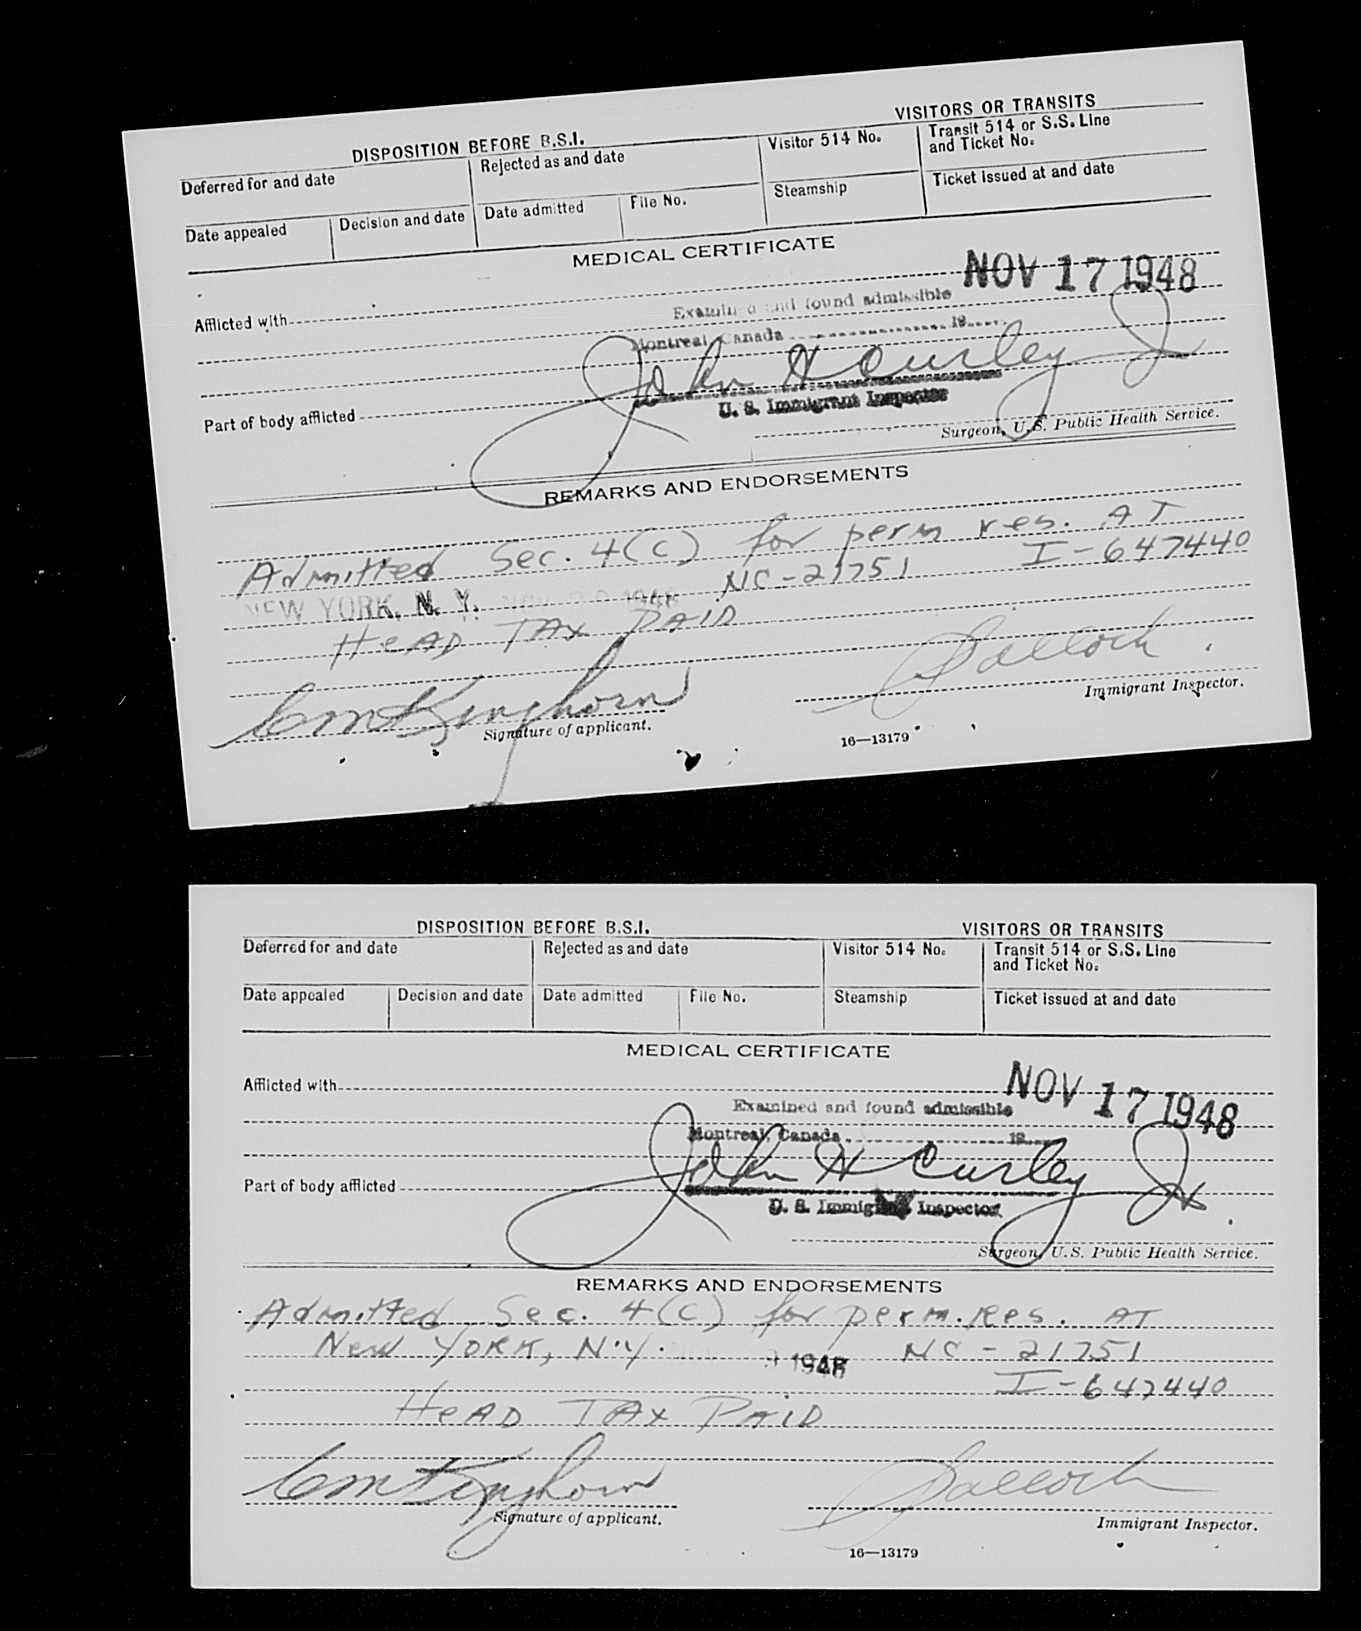 DISPOSITION BEFORE B.S.I. VISITORS OR TRANSITS
Deferred for and date Rejected as and date Visitor 514 No. Transit 514 or S.S. Line and Ticket No.
Date appealed Decision and date Date admitted File No. Steamship Ticket issued at and date
MEDICAL CERTIFICATE
NOV 17 1948
Afflicted with
Examined and found admissible
Montreal, Canada 19
John H Curley Jr
U. S. Immigrant Inspector
Part of body afflicted
Surgeon, U.S. Public Health Service.
REMARKS AND ENDORSEMENTS
Admitted Sec. 4(c) for perm res. AT
NEW YORK, N. Y. 1948 NC-21751 I-647440
HEAD TAX PAID
CM Kinghorn
Signature of applicant. Immigrant Inspector.
16—13179
DISPOSITION BEFORE B.S.I. VISITORS OR TRANSITS
Deferred for and date Rejected as and date Visitor 514 No. Transit 514 or S.S. Line and Ticket No.
Date appealed Decision and date Date admitted File No. Steamship Ticket issued at and date
MEDICAL CERTIFICATE
Afflicted with NOV 17 1948
Examined and found admissible
Montreal, Canada 19
John H Curley Jr
Part of body afflicted
U. S. Immigrant Inspector
Surgeon, U.S. Public Health Service.
REMARKS AND ENDORSEMENTS
Admitted Sec. 4(c) for perm. Res. AT
New YORK, N.Y. 1948 NC-21751
I-647440
HEAD TAX PAID
CM Kinghorn
Signature of applicant. Immigrant Inspector.
16—13179